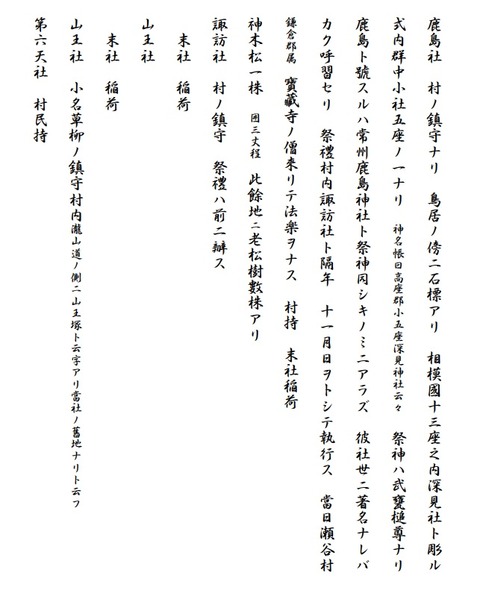 鹿島社　村ノ鎮守ナリ　鳥居ノ傍ニ石標アリ　相模國十三座之内深見社ト彫ル
式内群中小社五座ノ一ナリ　神名帳曰高座郡小五座深見神社云々　祭神ハ武甕槌尊ナリ
鹿島ト號スルハ常州鹿島神社ト祭神同シキノミニアラズ　彼社世ニ著名ナレバ
カク呼習セリ　祭禮村内諏訪社ト隔年　十一月日ヲトシテ執行ス　當日瀬谷村
鎌倉郡属　寶蔵寺ノ僧来リテ法楽ヲナス　村持　末社稲荷
神木松一株　囲三丈程　此餘地ニ老松樹數株アリ
諏訪社　村ノ鎮守　祭禮ハ前ニ辧ス
末社　稲荷
山王社
末社　稲荷
山王社　小名草柳ノ鎮守村内瀧山道ノ側ニ山王塚ト云字アリ當社ノ舊地ナリト云フ
第六天社　村民持